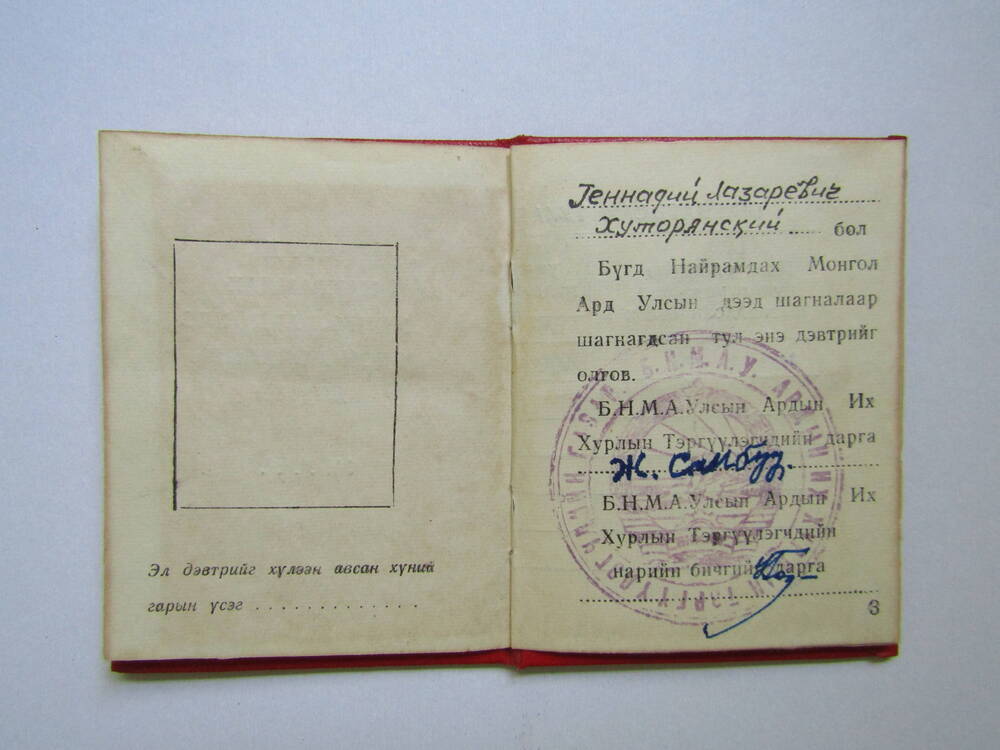 Эл дэвтрийг хүлээн авсан хүний
гарын үсэг . . . . . . . . . . . . .
Геннадий Лазаревич
Хуторянский .... бол
Бүгд Найрамдах Монгол
Ард Улсын дээд шагналаар
шагнагдсан тул энэ дэвтрийг
олгов.
Б.Н.М.А.Улсын Ардын Их
Хурлын Тэргүүлэгчдийн дарга
Ж. Самбуу.
Б.Н.М.А.Улсын Ардын Их
Хурлын Тэргүүлэгчдийн
нарийн бичгийн дарга
3
Б.Н.М.А.У. АРДЫН ИХ